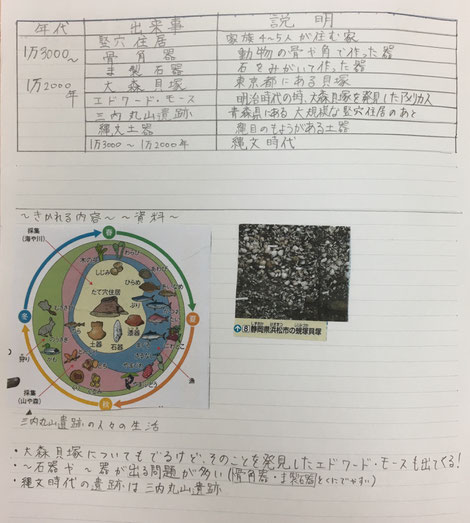 年代 出来事 説明
竪穴住居 家族4~5人が住む家
1万3000~ 骨角器 動物の骨や角で作った器
ま製石器 石をみがいて作った器
1万2000年 大森貝塚 東京都にある貝塚
エドワード・モース 明治時代の時、大森貝塚を発見したアメリカ人
三内丸山遺跡 青森県にある大規模な竪穴住居のあと
縄文土器 縄目のもようがある土器
1万3000~1万2000年 縄文時代
~きかれる内容~ ~資料~
採集
(海や川)
春
わらび
木の芽
しじみ
あわび
ひらめ
たて穴住居
ぶり
冬
夏
土器
石器
漆器
狩り
漁
採集
(山や森)
秋
⑧静岡県浜松市の蜆塚貝塚
三内丸山遺跡の人々の生活
・大森貝塚についてもでるけど、そのことを発見したエドワード・モースも出てくる!
・~石器や~器が出る問題が多い(骨角器・ま製石器とくにでやすい)
・縄文時代の遺跡は三内丸山遺跡